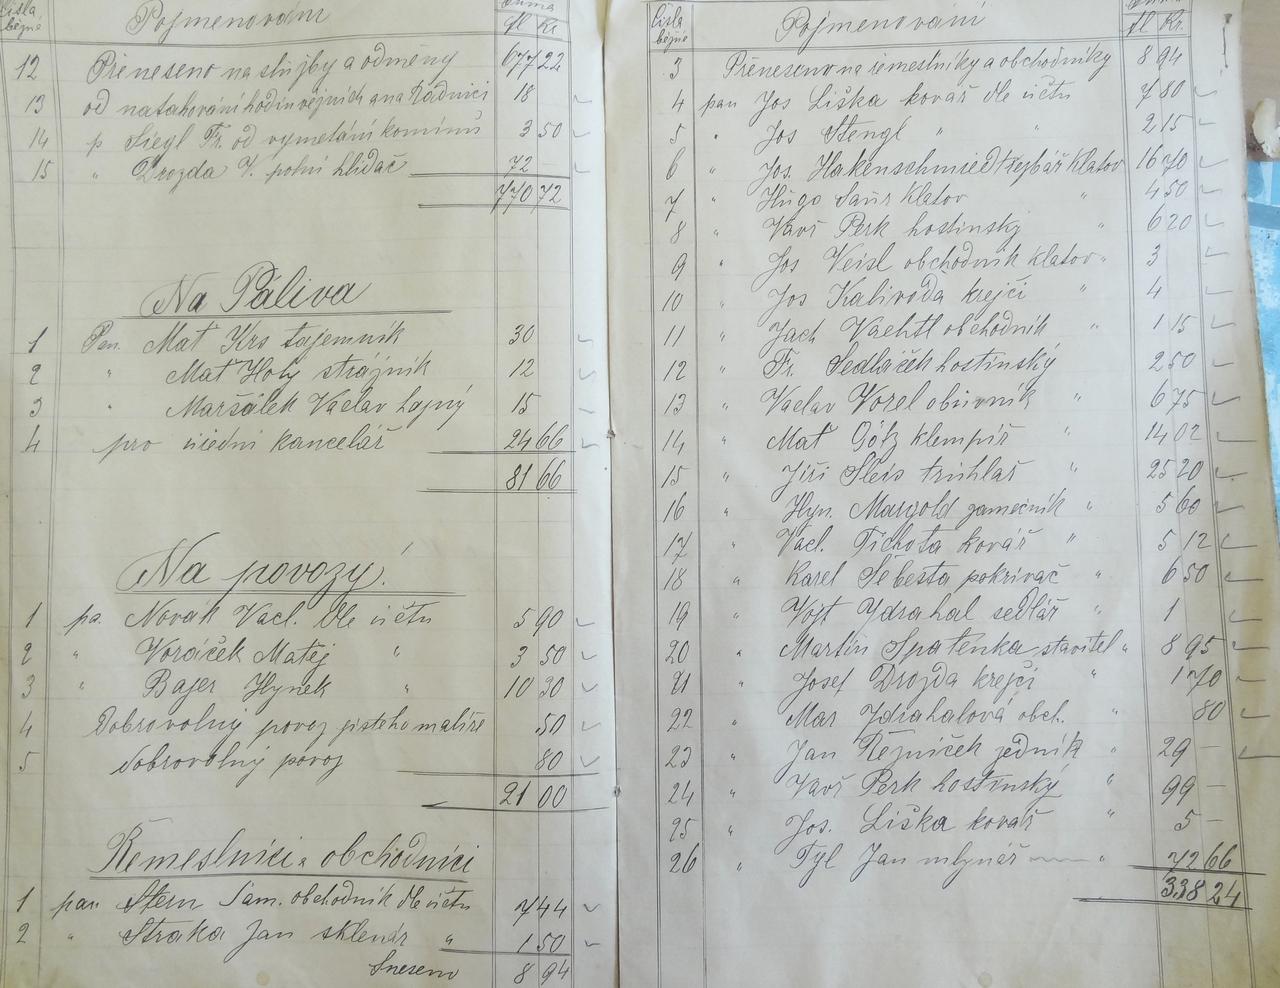 Čísla běžné Pojmenování Suma fl Kr.
12 Přeneseno na služby a odměny 677 22
13 od natahování hodin věžních a na Radnici 18
14 p Siegl Fr. od vymetání komínů 3 50
15 " Drozda V. polní hlídač 72 —
770 72
Na Páliva
1 Pan Mat Krs tajemník 30
2 " Mat Holý strážník 12
3 " Maršálek Václav hajný 15
4 pro úřední kancelář 24 66
81 66
Na povozy!
1 pa. Novák Vacl. dle účtu 5 90
2 " Voráček Matěj " 3 50
3 " Bajer Hynek " 10 30
4 Dobrovolný povoz jistého malíře 50
5 dobrovolný povoz 80
21 00
Řemeslníci a obchodníci
1 pan Stern Sam. obchodník dle účtu 7 44
2 " Straka Jan sklenář " 1 50
Snešeno 8 94
Čísla běžné Pojmenování fl Kr.
3 Přeneseno na řemeslníky a obchodníky 8 94
4 pan Jos Liška kovář dle účtu 7 80
5 " Jos Stengl " " 2 15
6 " Jos. Hakenschmied Klatov 16 70
7 " Hugo Saur Klatov " 4 50
8 " Vavř Perk hostinský " 6 20
9 " Jos Veisl obchodník Klatov " 3
10 " Jos Kalivoda krejčí " 4
11 " Jach Vachtl obchodník " 1 15
12 " Fr. Sedláček hostinský 2 50
13 " Vaclav Vorel obuvník " 6 75
14 " Mat Götz klempíř " 14 02
15 " Jiří Šleis truhlař " 25 20
16 " Hyn. Margold zamečník " 5 60
17 " Vacl. Tichota kovář " 5 12
18 " Karel Šebesta pokrivač " 6 50
19 " Vojt Zdrahal sedlář " 1
20 " Martin Spatenka stavitel " 8 95
21 " Josef Drozda krejčí " 1 70
22 " Mar Zdrahalová obch. " 80
23 " Jan Řezníček " 29 —
24 " Vavř Perk hostinský " 99 —
25 " Jos. Liška kovář " 5 —
26 " Tyl Jan mlynář " 72 66
338 24